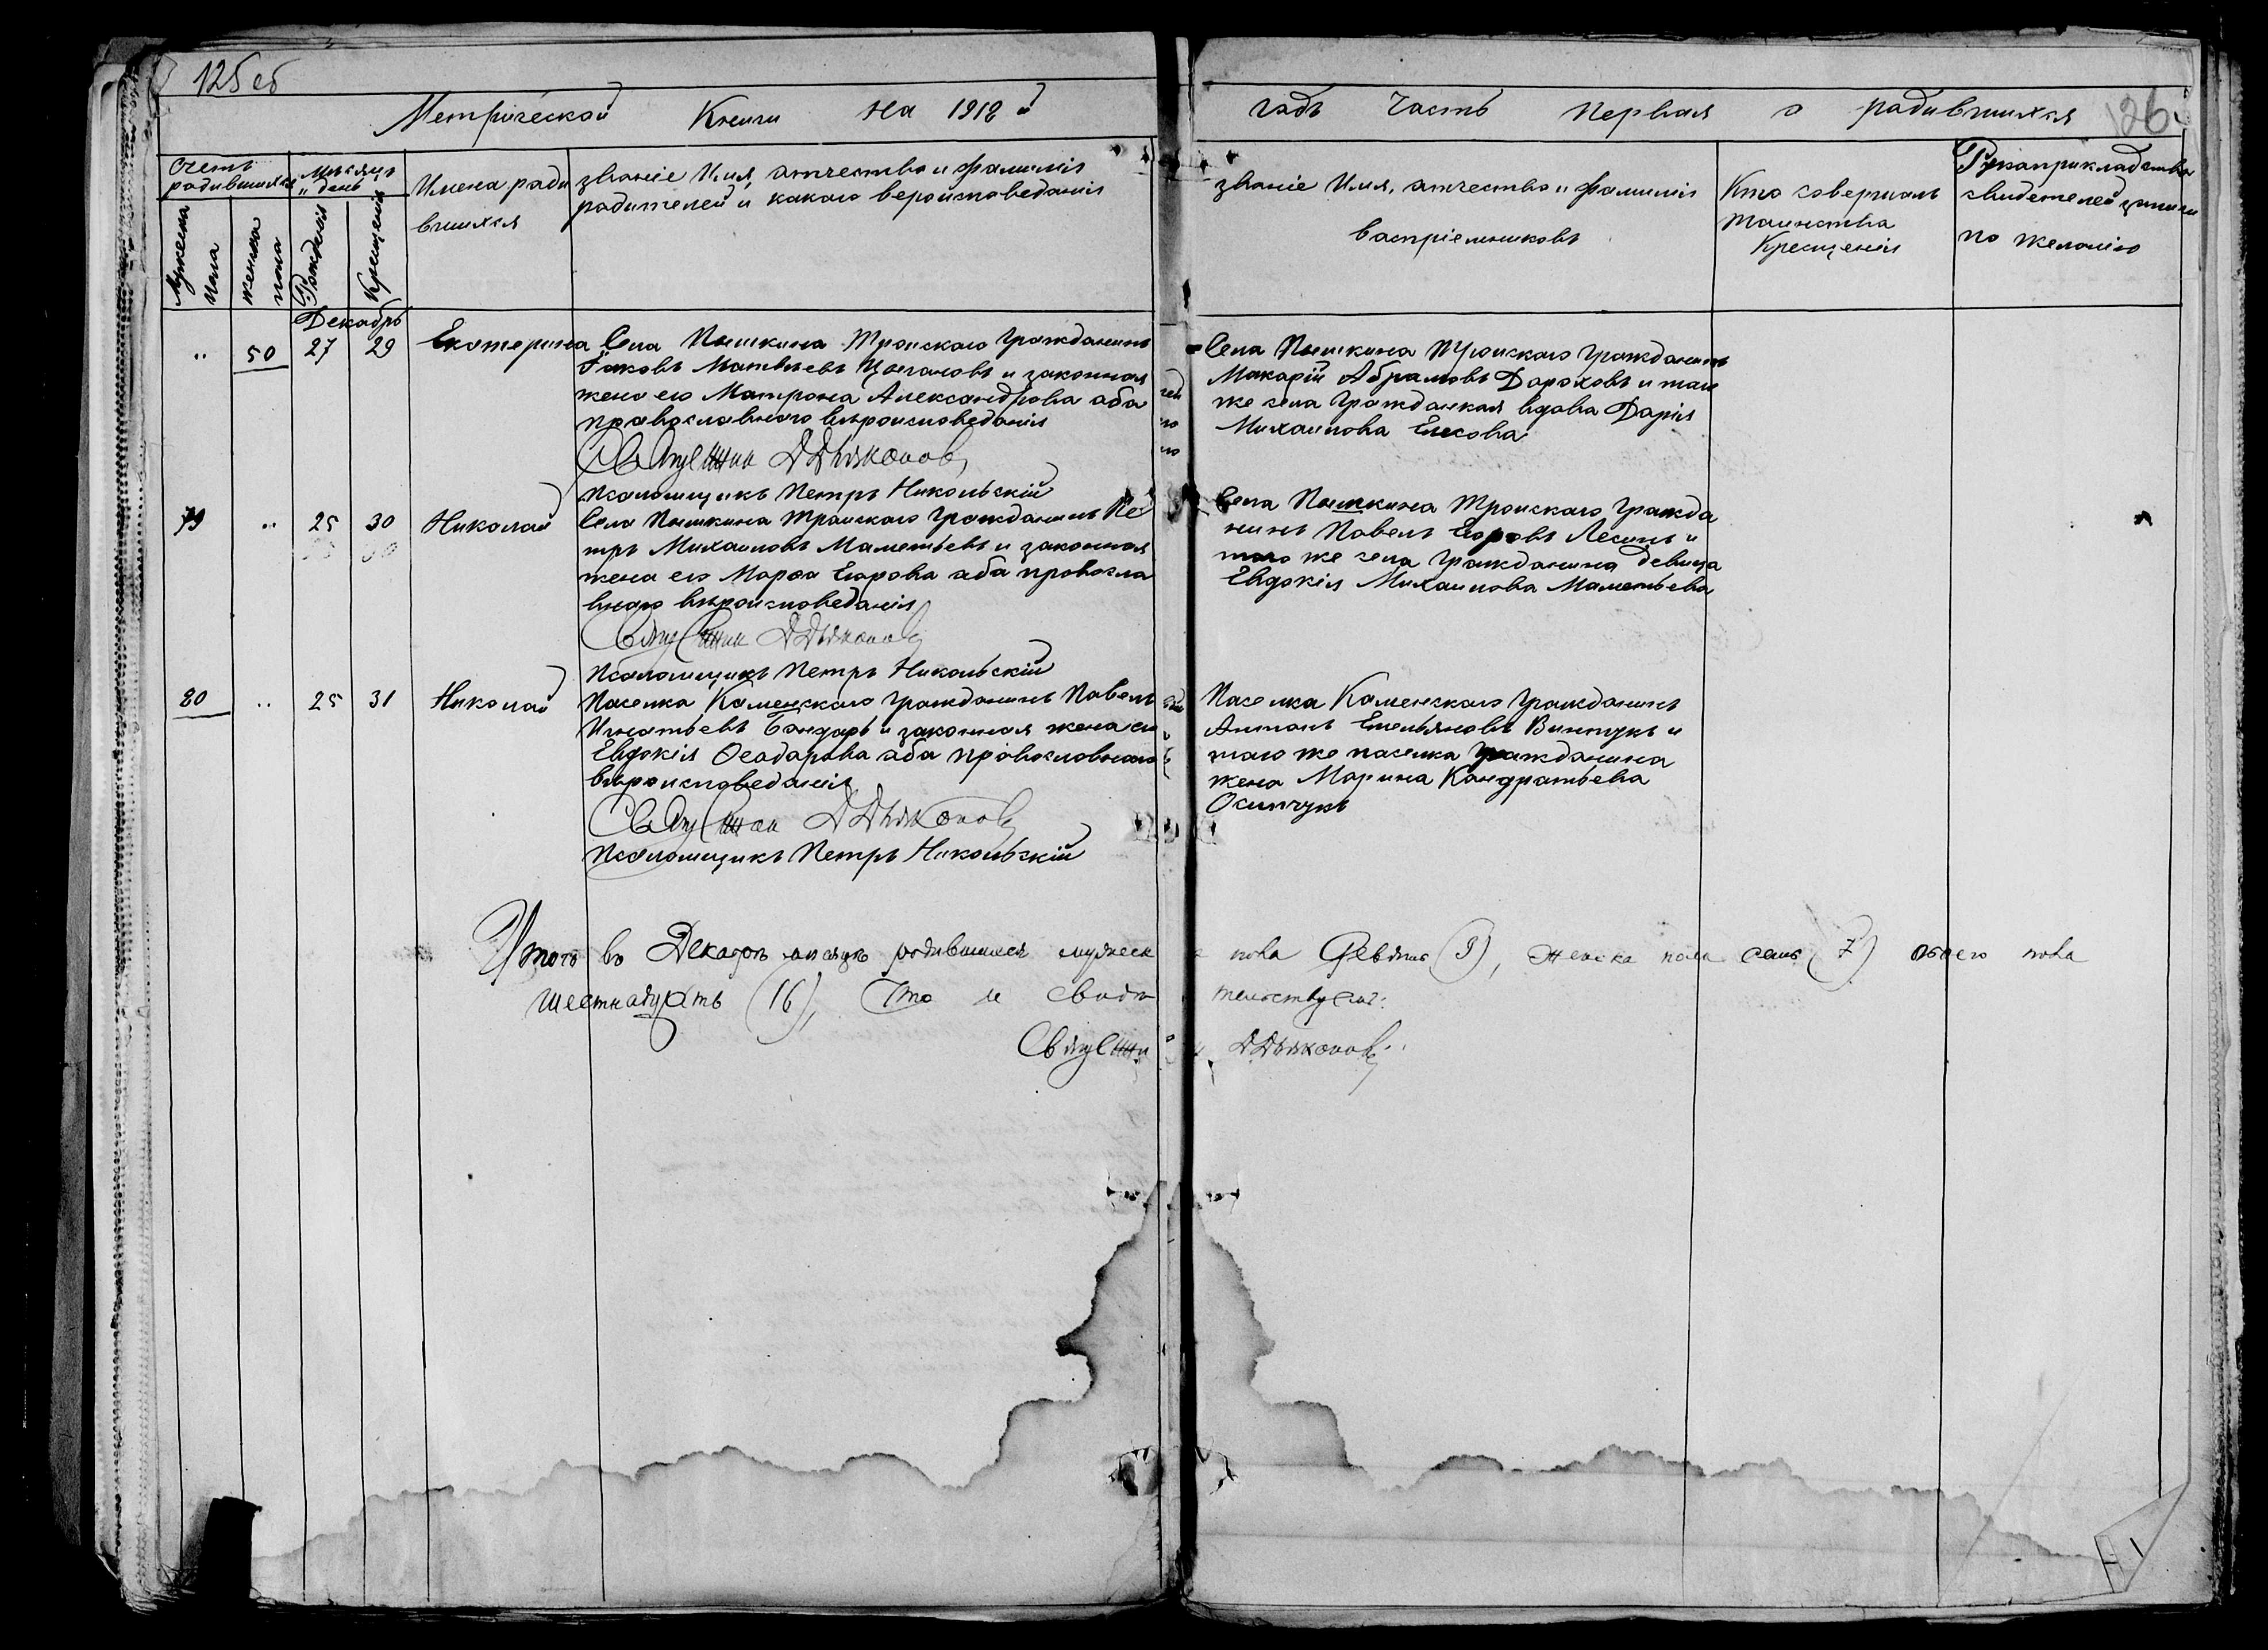 125 об
Метрической Книги на 1918 й
годъ Часть Первая о радившихся 126
Счетъ радившихся
Мужеска пола
женска пола
Месяцъ и день
Рожденія
Крещенія
Имена ради
вшихся
званіе Имя, атчество и фамилія
радителей и какого вероисповеданія
званіе Имя, атчество и фамилія
васпріемниковъ
Кто совершалъ
таинства
Крещенія
Рукаприкладства
свидетелей записи
по желанію
Декабрь
" 50 27 29 Екатерина
Села Пышкина Троискаго гражданинъ
Іаковъ Матвѣевъ Цыгановъ и законная
жена его Матрона Александрова аба
православнаго вѣроисповеданія
Священник Д Дьяконов
Псаломщикъ Петръ Никольскій
Села Пышкина Троискаго гражданинъ
Макарій Абрамовъ Дороховъ и таго
же села гражданская вдова Дарія
Михаилова Елкова
79 " 25 30 Николай
Села Пышкина Траискаго гражданинъ Пе
тръ Михаиловъ Маметьевъ и законная
жена его Марфа Егарова аба правосла
внаго вѣроисповеданія
Священник Д Дьяконов
Псаломщикъ Петръ Никольскій
Села Пышкина Троискаго гражда
нинъ Павелъ Егоровъ Лесинъ и
таго же села гражданина девица
Евдокія Михаилова Маметьева
80 " 25 31 Николай
Паселка Каменскаго гражданинъ Павелъ
Игнатьевъ Бандарь и законная жена его
Евдокія Феадарова аба православнаго
вѣроисповеданія
Священник Д Дьяконов
Псаломщикъ Петръ Никольскій
Паселка Каменскаго гражданинъ
Антонъ Емельяновъ Винтукъ и
таго же паселка гражданина
жена Марина Кандратьева
Осипчукъ
Итого въ Декабрѣ месяцѣ родившихся мужеск пола девять (9), женска пола семь (7) обоего пола
шестнадцать (16), Что и свидѣтельствуемъ:
Священник Д Дьяконов